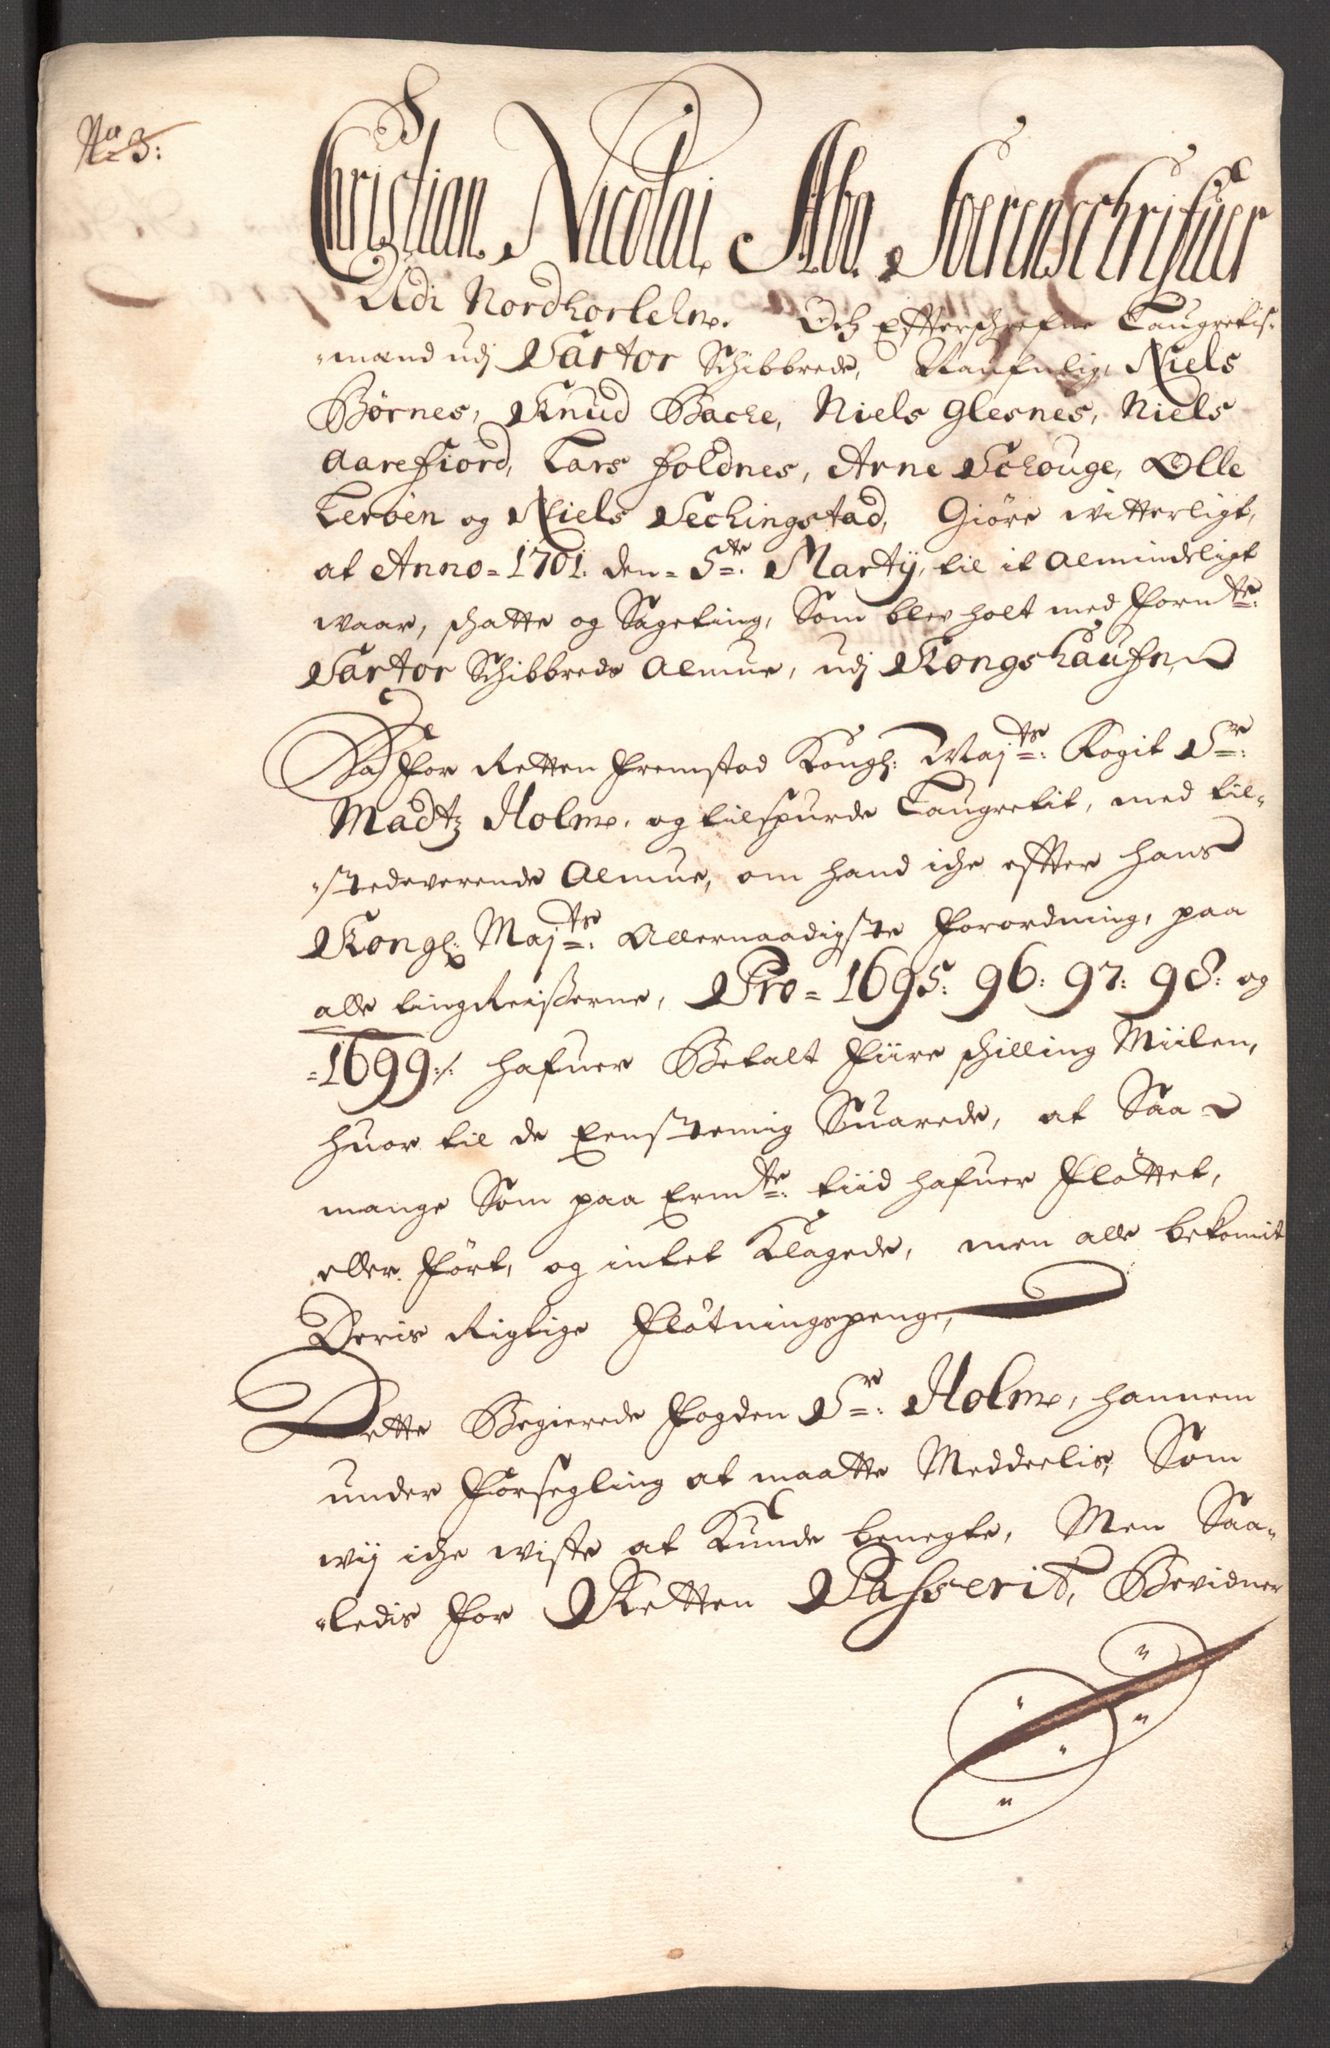 No 3:
Christian Nicolai Abo. Soerenschrifuer
Udi Nordhorlehn. Och Effterschrefne Laugretis-
mænd udj Sartor Schibbrede, Naufnlig, Niels
Børnes, Knud Bache, Niels Glesnes, Niels
Aarefiord, Lars Foldnes, Arne Schouge, Olle
Lerøen og Niels Sechingstad, Giøre witterligt,
at Anno 1701. den 5te Martij, til it almindeligt
waar, schatte og Sageting, Som blev holt med Fornte:
Sartor Schibbreds Almue, udj Kongshaufn,
Da for Retten fremstod Kongl: Maj.ts: Fogit Sr:
Madtz Holm, og tilspurde Laugretit, med til-
stedeverende Almue, om hand iche effter hans
Kongl: Maj.ts: Allernaadigste Forordning, paa
alle tingReisserne, Pro 1695: 96: 97: 98: og
1699 hafuer Betalt fiire schilling Miilen,
huor til de Eenstemig Suarede, at Saa
mange Som paa Ermte: tiid hafuer Fløttet,
eller Ført, og intet Klagede, men alle bekomit
Deris Rigtige Fløtningspenge,
Dette Begierede Fogden Sr: Holm, hannem
under Forsegling at maatte Meddeelis, Som
wij iche wiste at Kunde benegte, Men Saa-
ledis for Retten Passerit, Bevidner